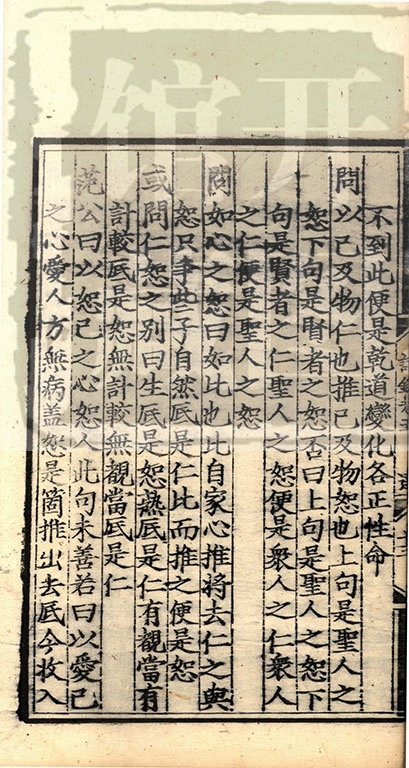 不到此便是乾道變化各正性命
問以己及物仁也推己及物恕也上句是聖人之
恕下句是賢者之恕否曰上句是聖人之恕下
句是賢者之仁聖人之恕便是衆人之仁衆人
之仁便是聖人之恕
問如心之恕曰如比也比自家心推將去仁之與
恕只爭些子自然底是仁此而推之便是恕
或問仁恕之別曰生底是恕熟底是仁有覷當有
計較底是恕無計較無覷當底是仁
范公曰以恕己之心恕人此句未善若曰以愛己
之心愛人方無病盖恕是箇推出去底今收入